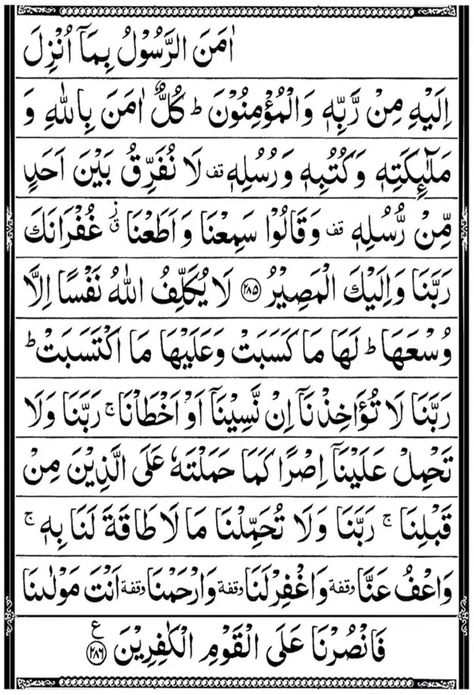 اٰمَنَ الرَّسُوْلُ بِمَاۤ اُنْزِلَ
اِلَيْهِ مِنْ رَّبِّهٖ وَالْمُؤْمِنُوْنَ ؕ كُلٌّ اٰمَنَ بِاللّٰهِ وَ
مَلٰٓئِكَتِهٖ وَكُتُبِهٖ وَرُسُلِهٖ قف لَا نُفَرِّقُ بَيْنَ اَحَدٍ
مِّنْ رُّسُلِهٖ قف وَقَالُوْا سَمِعْنَا وَاَطَعْنَا ق ز غُفْرَانَكَ
رَبَّنَا وَاِلَيْكَ الْمَصِيْرُ ﴿۲۸۵﴾ لَا يُكَلِّفُ اللّٰهُ نَفْسًا اِلَّا
وُسْعَهَا ؕ لَهَا مَا كَسَبَتْ وَعَلَيْهَا مَا اكْتَسَبَتْ ؕ
رَبَّنَا لَا تُؤَاخِذْنَاۤ اِنْ نَّسِيْنَاۤ اَوْ اَخْطَاْنَا ۚ رَبَّنَا وَلَا
تَحْمِلْ عَلَيْنَاۤ اِصْرًا كَمَا حَمَلْتَهٗ عَلَى الَّذِيْنَ مِنْ
قَبْلِنَا ۚ رَبَّنَا وَلَا تُحَمِّلْنَا مَا لَا طَاقَةَ لَنَا بِهٖ ۚ
وَاعْفُ عَنَّا وقفة وَاغْفِرْ لَنَا وقفة وَارْحَمْنَا وقفة اَنْتَ مَوْلٰىنَا
فَانْصُرْنَا عَلَى الْقَوْمِ الْكٰفِرِيْنَ ع ﴿۲۸۶﴾